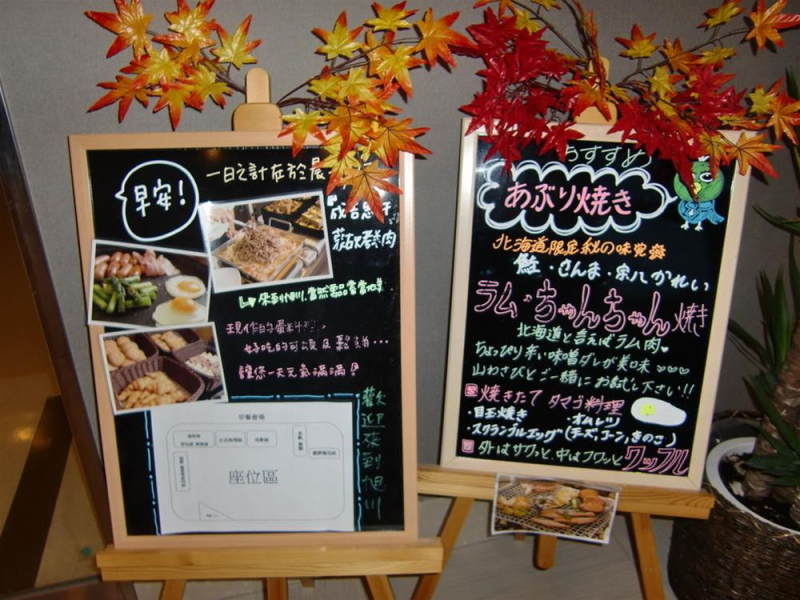 早安!
一日之計在於晨
成吉思汗
蒙古烤肉
來到旭川,當然品嘗當地
現作的蛋料理,
好吃的可頌及鬆餅…
讓您一天元氣滿滿!
歡迎來到旭川
早餐會場
座位區
おすすめ
あぶり焼き
北海道限定秋の味覚
鮭・さんま・宗八かれい
ラム・ちゃんちゃん焼き
北海道と言えばラム肉♥
ちょっぴり辛い味噌ダレが美味♡♡♡
山わさびとご一緒にお試し下さい!!
焼きたてタマゴ料理
・目玉焼き ・オムレツ
・スクランブルエッグ(チーズ、コーン、きのこ)
外はサクッと、中はフワッとワッフル